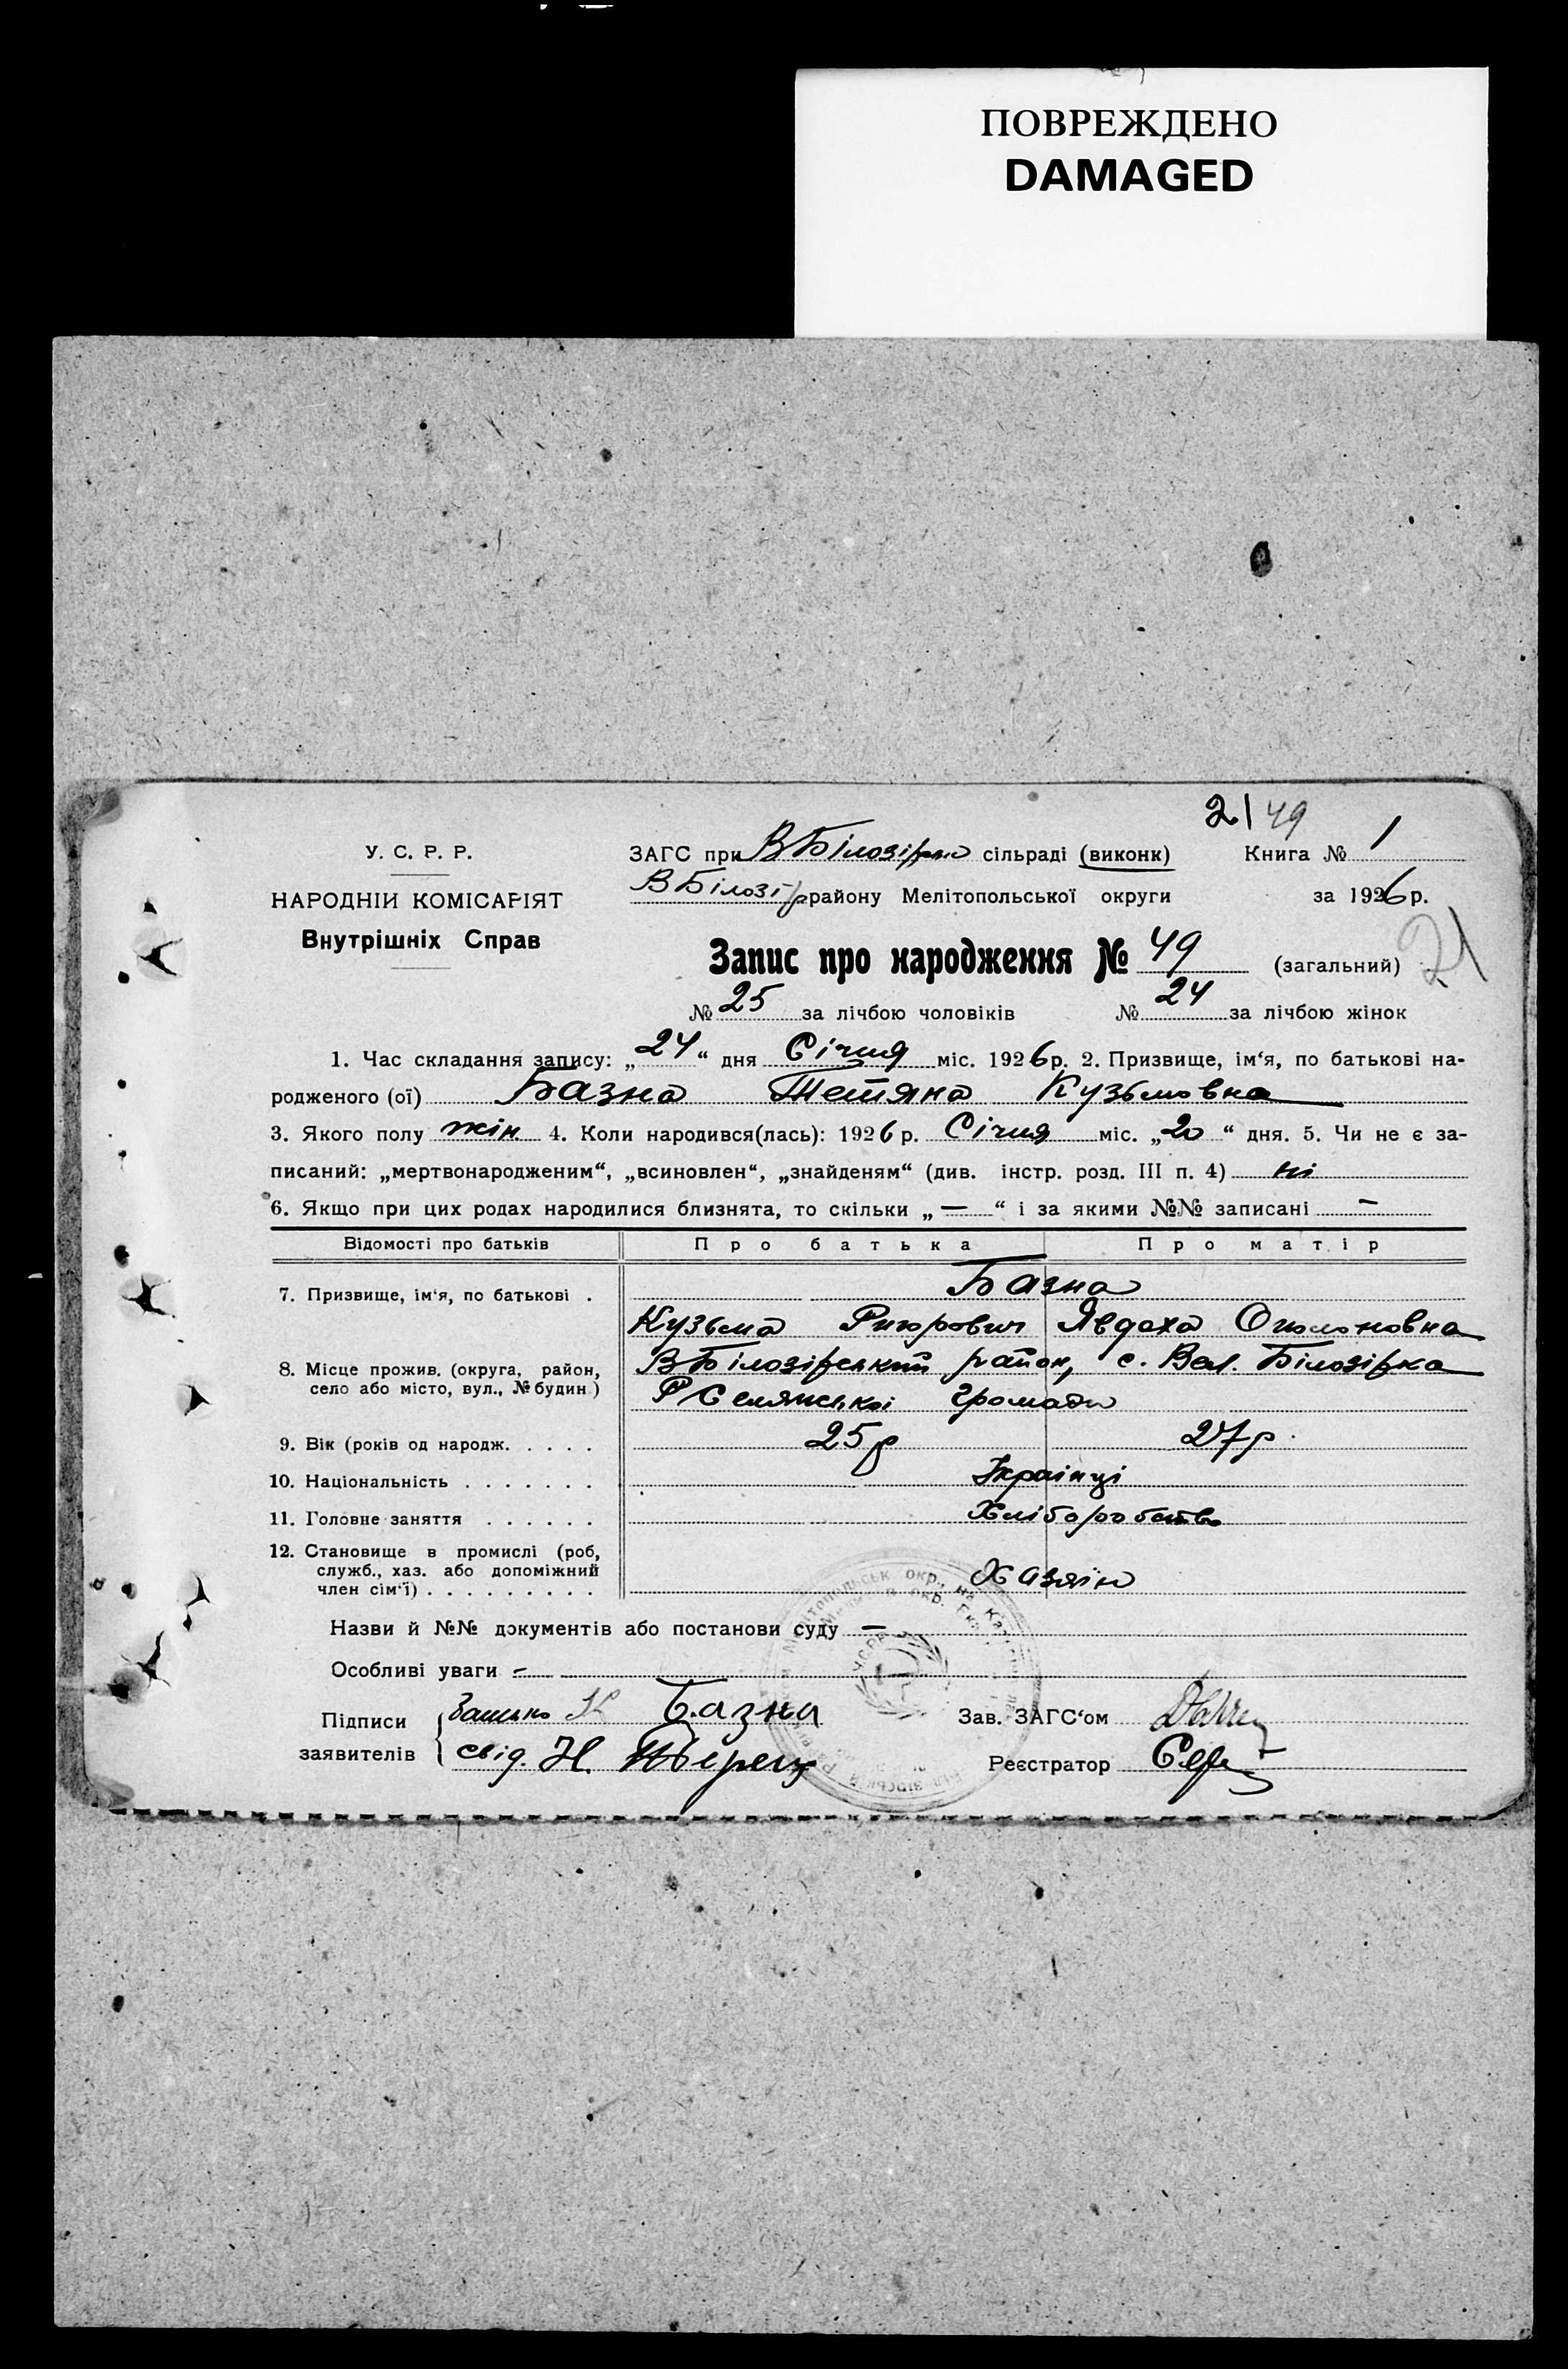 ПОВРЕЖДЕНО
DAMAGED
2/49
У. С. Р. Р.
ЗАГС при сільраді (виконк) Книга № 1
НАРОДНІЙ КОМІСАРІЯТ
ВБілозір району Мелітопольської округи за 1926 р.
Внутрішніх Справ
Запис про народження № 49 (загальний) 21
№ 25 за лічбою чоловіків № 24 за лічбою жінок
1. Час складання запису: „24“ дня Січня міс. 1926 р. 2. Призвище, ім‘я, по батькові на-
родженого (ої) Базна Тетяна Кузьмовна
3. Якого полу жін. 4. Коли народився(лась): 1926 р. Січня міс. „20“ дня. 5. Чи не є за-
писаний: „мертвонародженим“, „всиновлен“, „знайденям“ (див. інстр. розд. III п. 4) ні
6. Якщо при цих родах народилися близнята, то скільки „—“ і за якими №№ записані –
Відомості про батьків Про батька Про матір
7. Призвище, ім‘я, по батькові . Базна
Кузьма Явдоха
8. Місце прожив. (округа, район, ВБілозірський район, с. Вел. Білозірка
село або місто, вул., № будин.) Селянської громади
9. Вік (років од народж. . . . . 25 р 27 р.
10. Національність . . . . . . . Українці
11. Головне заняття . . . . . . Хліборобство
12. Становище в промислі (роб,
служб., хаз. або допоміжний Хазяїн
член сім‘ї) . . . . . . . . .
Назви й №№ документів або постанови суду —
Особливі уваги –
Підписи Батько К Базна Зав. ЗАГС‘ом
заявителів свід. Н. Реєстратор